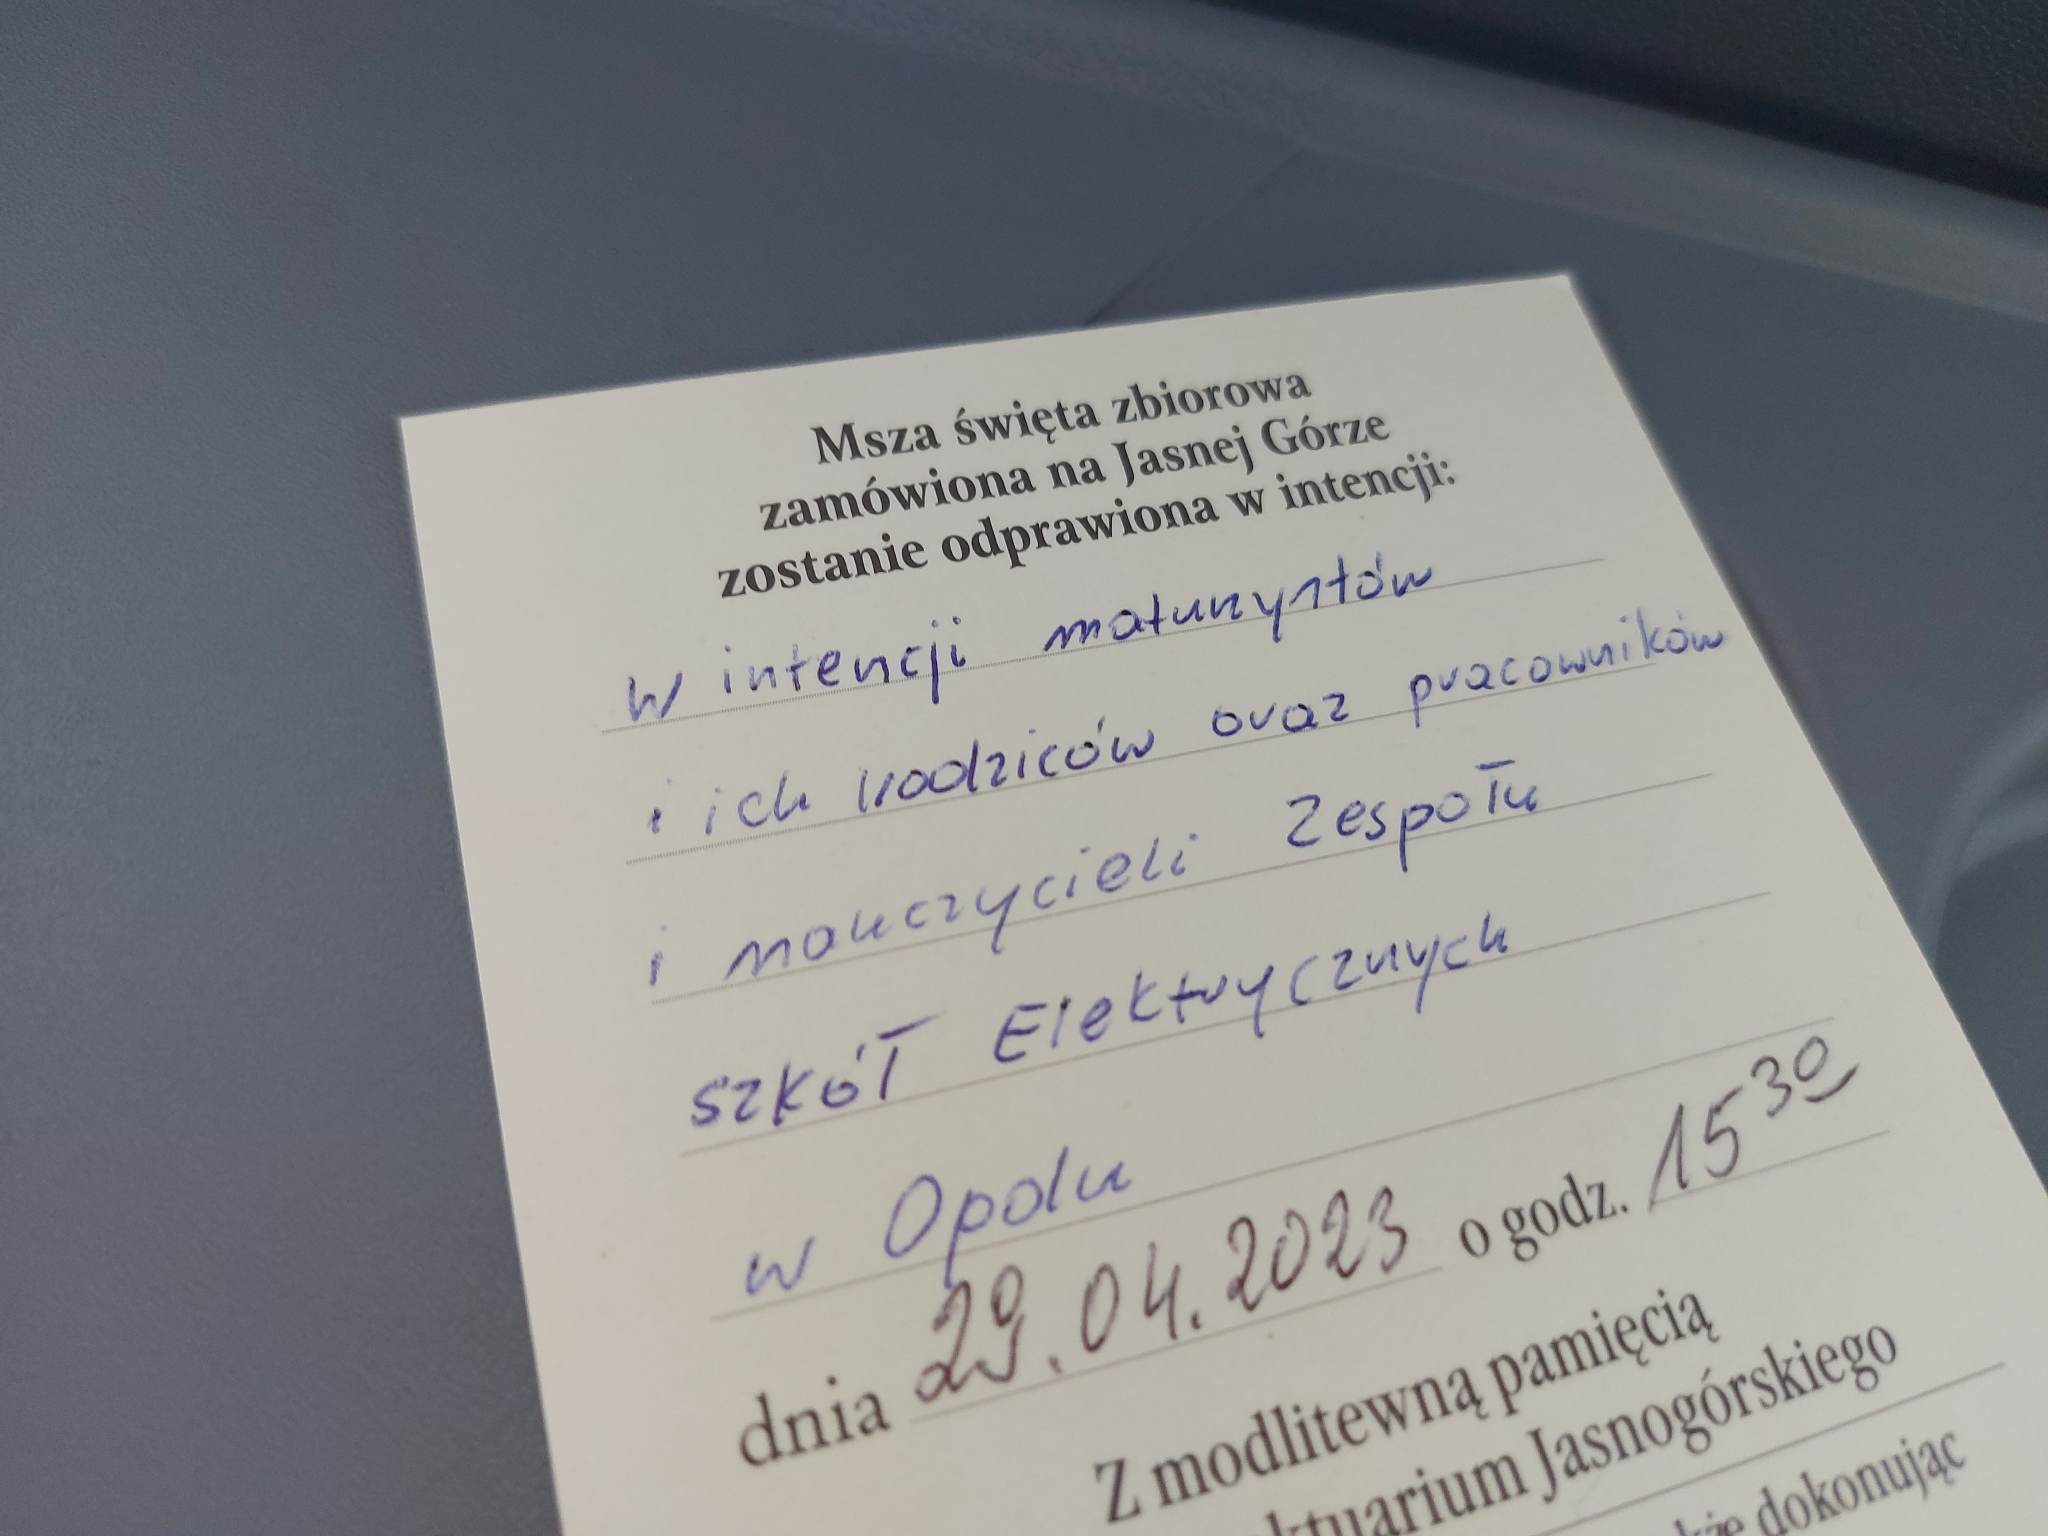 Msza święta zbiorowa
zamówiona na Jasnej Górze
zostanie odprawiona w intencji:
w intencji maturzystów
i ich rodziców oraz pracowników
i nauczycieli Zespołu
szkół Elektrycznych
w Opolu
dnia 29.04.2023 o godz. 15 30
Z modlitewną pamięcią
Jasnogórskiego
dokonując